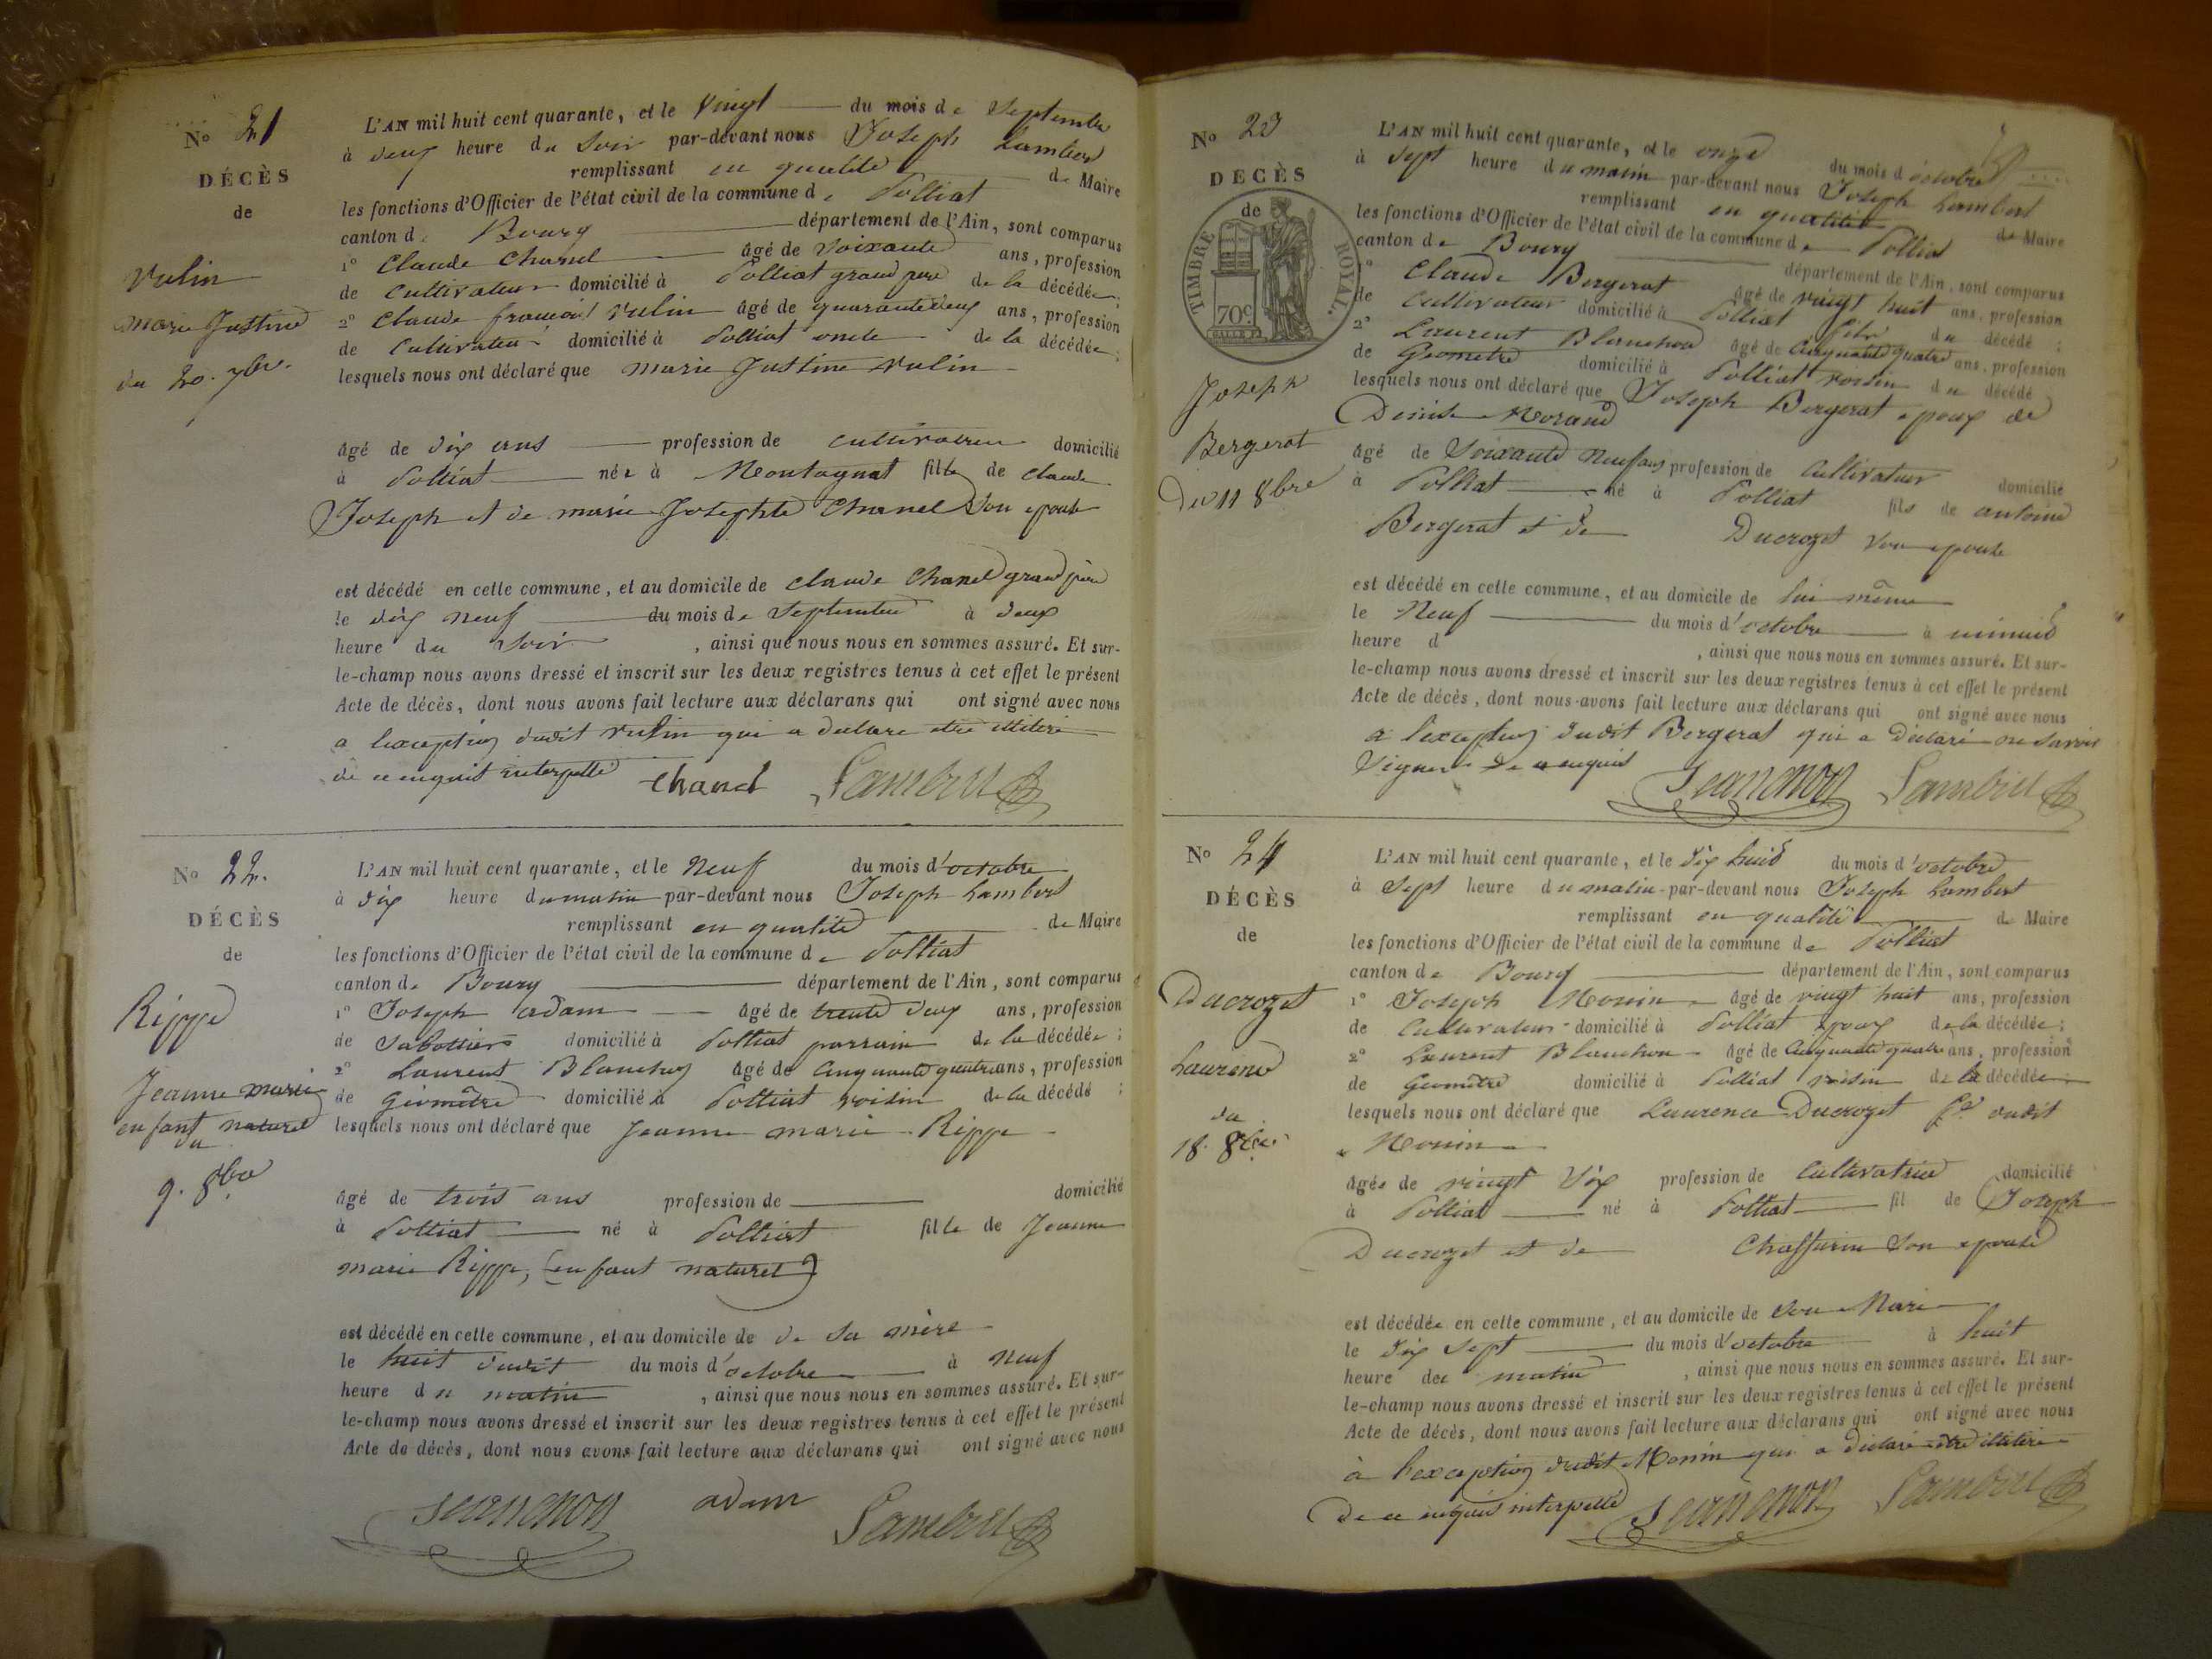 No 21
DÉCÈS
de
Vulin
Marie Justine
du 20. 7bre.
L'AN mil huit cent quarante, et le vingt du mois de septembre
à deux heure du soir par-devant nous Joseph Lambert
remplissant en qualité de Maire
les fonctions d'Officier de l'état civil de la commune de Polliat
canton de Bourg département de l'Ain, sont comparus
1° Claude Chanel âgé de soixante ans, profession
de cultivateur domicilié à Polliat grand pere de la décédée;
2° Claude françois Vulin âgé de quarante deux ans, profession
de cultivateur domicilié à Polliat oncle de la décédée;
lesquels nous ont déclaré que marie Justine Vulin
âgé de dix ans profession de cultivatrice domicilié
à Polliat née à Montagnat fille de claude
Joseph et de marie Josephte Chanel son epouse
est décédé en cette commune, et au domicile de claude Chanel grand père
le dix neuf du mois de septembre à deux
heure du soir, ainsi que nous nous en sommes assuré. Et sur-
le-champ nous avons dressé et inscrit sur les deux registres tenus à cet effet le présent
Acte de décès, dont nous avons fait lecture aux déclarans qui ont signé avec nous
a l'exception dudit vulin qui a declare etre illiteré
de ce enquit interpellé Chanel Lambert
No 22.
DÉCÈS
de
Rippe
Jeanne marie
enfant naturel
du
9. 8bre
L'AN mil huit cent quarante, et le neuf du mois d'octobre
à dix heure du matin par-devant nous Joseph Lambert
remplissant en qualité de Maire
les fonctions d'Officier de l'état civil de la commune de Polliat
canton de Bourg département de l'Ain, sont comparus
1° Joseph adam âgé de trente deux ans, profession
de sabottier domicilié à Polliat parrain de la décédée;
2° Laurent Blanchon âgé de cinquante quatre ans, profession
de géomètre domicilié à Polliat voisin de la décédé;
lesquels nous ont déclaré que Jeanne marie Rippe
âgé de trois ans profession de domicilié
à Polliat né à Polliat fille de Jeanne
marie Rippe, (enfant naturel)
est décédé en cette commune, et au domicile de de sa mère
le huit dudit du mois d'octobre à neuf
heure du matin, ainsi que nous nous en sommes assuré. Et sur-
le-champ nous avons dressé et inscrit sur les deux registres tenus à cet effet le présent
Acte de décès, dont nous avons fait lecture aux déclarans qui ont signé avec nous
adam Lambert
No 23
DECÈS
de
TIMBRE ROYAL.
70c
Joseph
Bergerat
Du 11 8bre
L'AN mil huit cent quarante, et le onze du mois d'octobre
à sept heure du matin par-devant nous Joseph Lambert
remplissant en qualité de Maire
les fonctions d'Officier de l'état civil de la commune de Polliat
canton de Bourg département de l'Ain, sont comparus
1° Claude Bergerat âgé de vingt huit ans, profession
de cultivateur domicilié à Polliat fils du décédé;
2° Laurent Blanchon âgé de cinquante quatre ans, profession
de Geometre domicilié à Polliat voisin du décédé
lesquels nous ont déclaré que Joseph Bergerat epoux de
Denise Morand
âgé de soixante neuf ans profession de cultivateur domicilié
à Polliat né à Polliat fils de antoine
Bergerat et de Ducrozet son epouse
est décédé en cette commune, et au domicile de lui même
le neuf du mois d'octobre à minuit
heure d, ainsi que nous nous en sommes assuré. Et sur-
le-champ nous avons dressé et inscrit sur les deux registres tenus à cet effet le présent
Acte de décès, dont nous avons fait lecture aux déclarans qui ont signé avec nous
a l'exception dudit Bergerat qui a déclaré ne savoir
signer de ce enquis Lambert
No 24
DÉCÈS
de
Ducrozet
Laurence
du
18. 8bre
L'AN mil huit cent quarante, et le dix huit du mois d'octobre
à sept heure du matin par-devant nous Joseph Lambert
remplissant en qualité de Maire
les fonctions d'Officier de l'état civil de la commune de Polliat
canton de Bourg département de l'Ain, sont comparus
1° Joseph Monin âgé de vingt huit ans, profession
de cultivateur domicilié à Polliat époux de la décédée;
2° Laurent Blanchon âgé de cinquante quatre ans, profession
de Geomètre domicilié à Polliat voisin de la décédée
lesquels nous ont déclaré que Laurence Ducrozet fe dudit
Monin
âgée de vingt dix profession de cultivatrice domicilié
à Polliat né à Polliat fil de Joseph
Ducrozet et de Chaffurin son epouse
est décédée en cette commune, et au domicile de son Mari
le dix sept du mois d'octobre à huit
heure de matin, ainsi que nous nous en sommes assuré. Et sur-
le-champ nous avons dressé et inscrit sur les deux registres tenus à cet effet le présent
Acte de décès, dont nous avons fait lecture aux déclarans qui ont signé avec nous
à l'exception dudit Monin qui a déclaré être illiteré
de ce enquis interpellé Lambert